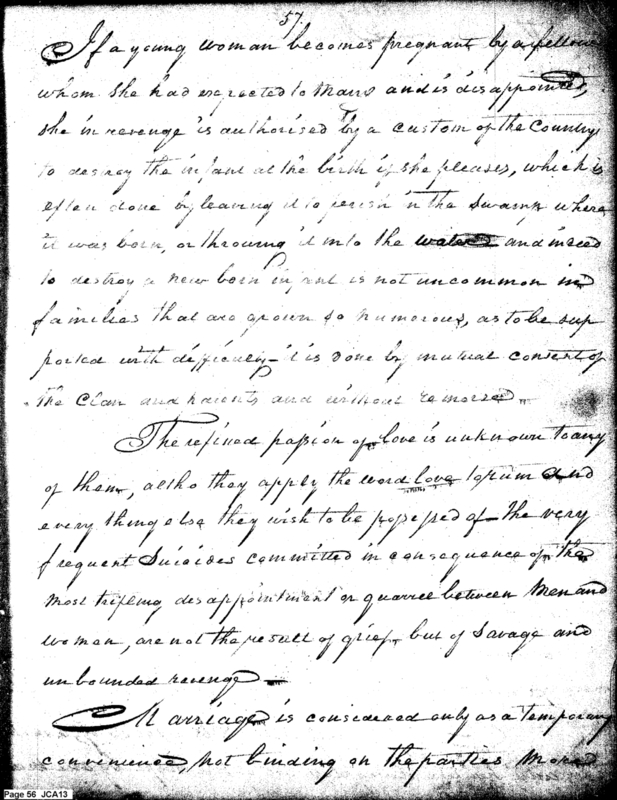 57.
If a young woman becomes pregnant by a fellow
whom she had expected to Marry and is disappointed,
she in revenge is authorised by a custom of the Country
to destroy the infant at the birth if she pleases, which is
often done by leaving it to perish in the Swamp where
it was born, or throwing it into the water and indeed
to destroy a new born infant is not uncommon in
families that are grown so numorous, as to be sup
ported with difficulty - it is done by mutual consent of
the Clan and parents and without remorse
The refined passion of love is unknown to any
of them, altho they apply the word love to rum and
every thing else they wish to be possessed of - the very
frequent Suicides committed in consequence of the
most trifling disappointment or quarrel between Men and
women, are not the result of grief, but of Savage and
unbounded revenge -
Marriage is considered only as a temporary
convenience, not binding on the parties more
Page 56 JCA13